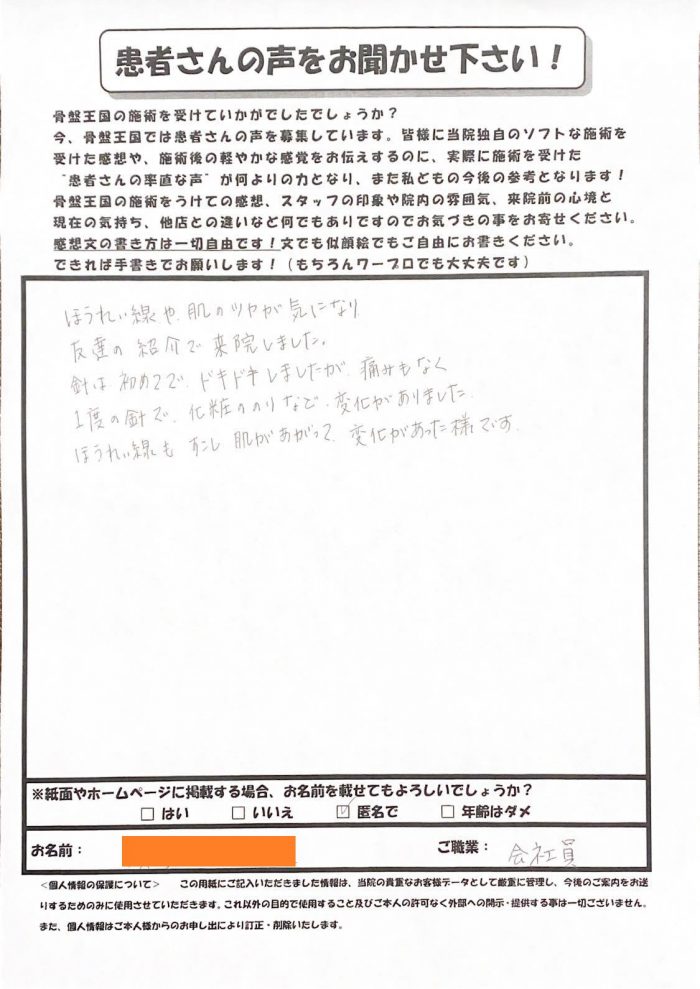 患者さんの声をお聞かせ下さい！
骨盤王国の施術を受けていかがでしたでしょうか？
今、骨盤王国では患者さんの声を募集しています。皆様に当院独自のソフトな施術を
受けた感想や、施術後の軽やかな感覚をお伝えするのに、実際に施術を受けた
“患者さんの率直な声”が何よりの力となり、また私どもの今後の参考となります！
骨盤王国の施術をうけての感想、スタッフの印象や院内の雰囲気、来院前の心境と
現在の気持ち、他店との違いなど何でもありですのでお気づきの事をお寄せください。
感想文の書き方は一切自由です！文でも似顔絵でもご自由にお書きください。
できれば手書きでお願いします！（もちろんワープロでも大丈夫です）
ほうれい線や、肌のツヤが気になり
友達の紹介で来院しました。
針は初めてで、ドキドキしましたが、痛みもなく
1度の針で、化粧ののりなど、変化がありました。
ほうれい線も すこし 肌があがって、変化があった様です。
※紙面やホームページに掲載する場合、お名前を載せてもよろしいでしょうか？
□ はい □ いいえ ☑ 匿名で □ 年齢はダメ
お名前： ご職業： 会社員
＜個人情報の保護について＞ この用紙にご記入いただきました情報は、当院の貴重なお客様データとして厳重に管理し、今後のご案内をお送
りするためのみに使用させていただきます。これ以外の目的で使用すること及びご本人の許可なく外部への開示・提供する事は一切ございません。
また、個人情報はご本人様からのお申し出により訂正・削除いたします。